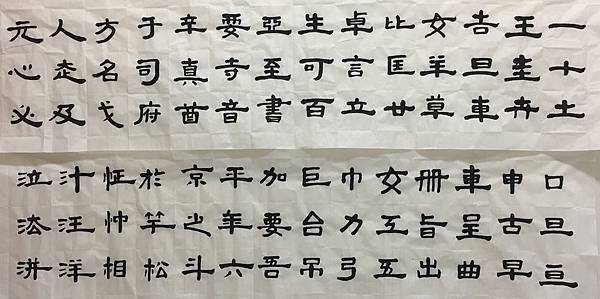 一十土
王圭卉
吉旦車
女羊草
比匡廿
卓言立
生可百
亞至書
要奇音
辛真酋
于司府
方名戈
人走及
元心必
口旦亘
申古早
車呈曲
冊旨出
女互五
巾力弓
巨合吊
加要吾
平年六
京之斗
於竿松
怔忡相
汁汪洋
泣洴